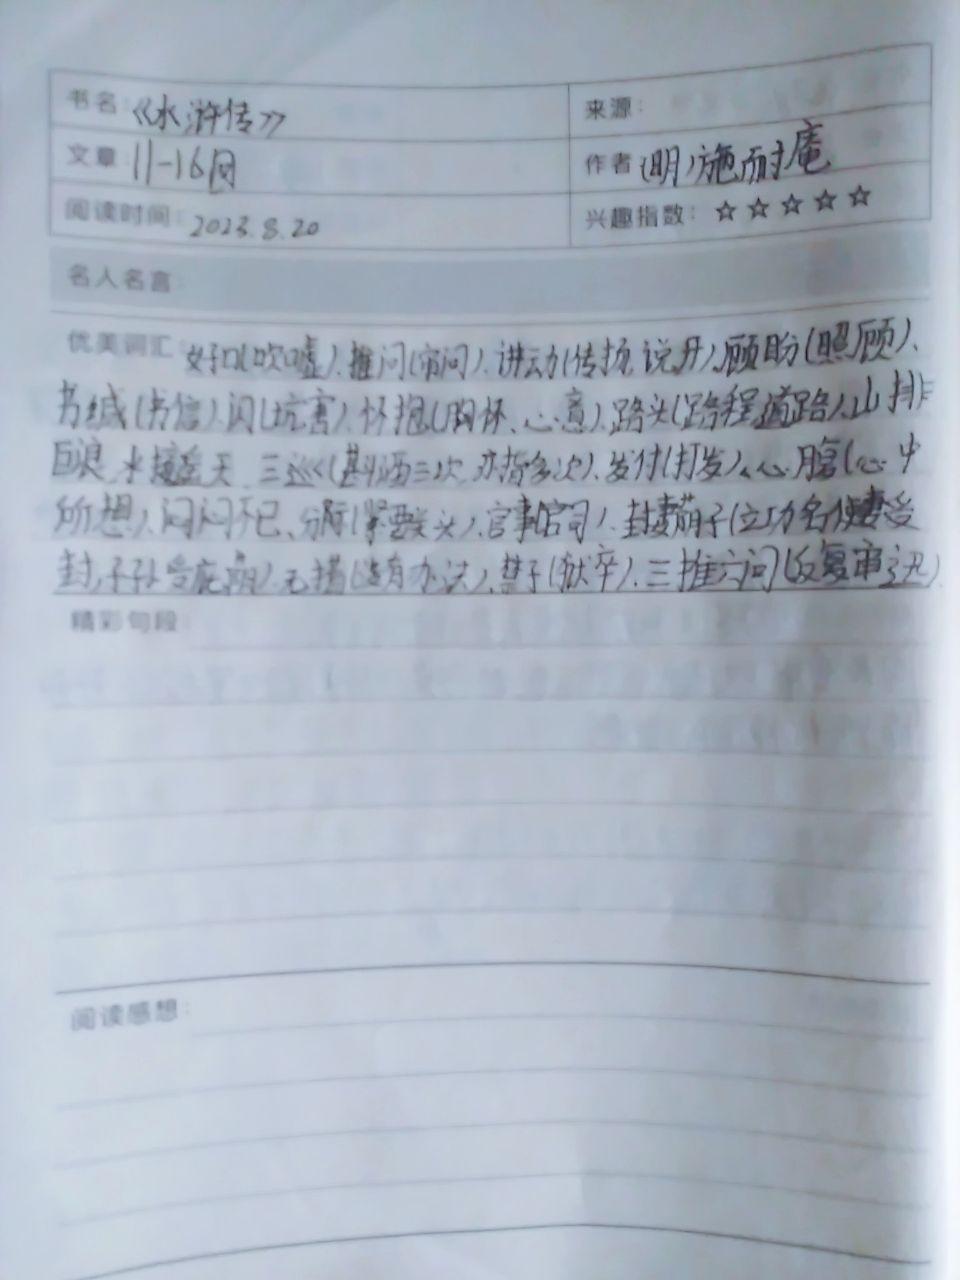 书名：《水浒传》 来源：
文章：11-16回 作者：(明)施耐庵
阅读时间：2023.8.20 兴趣指数：☆☆☆☆☆
名人名言：
优美词汇：好口(吹嘘)、推问(审问)、讲动(传扬,说开)、顾盼(照顾)、
书缄(书信)、闪(坑害)、怀抱(胸怀、心意)、路头(路程,道路)、山排
巨浪,水接遥天,三巡(斟酒三次,亦指多次)、发付(打发)、心腹(心中
所想)、闷闷不已、分际(紧要关头)、官事官司)、封妻荫子(立功名使妻受
封,子孙受庇荫)、无措(没有办法)、禁子(狱卒)、三推六问(反复审讯)
精彩句段：
阅读感想：